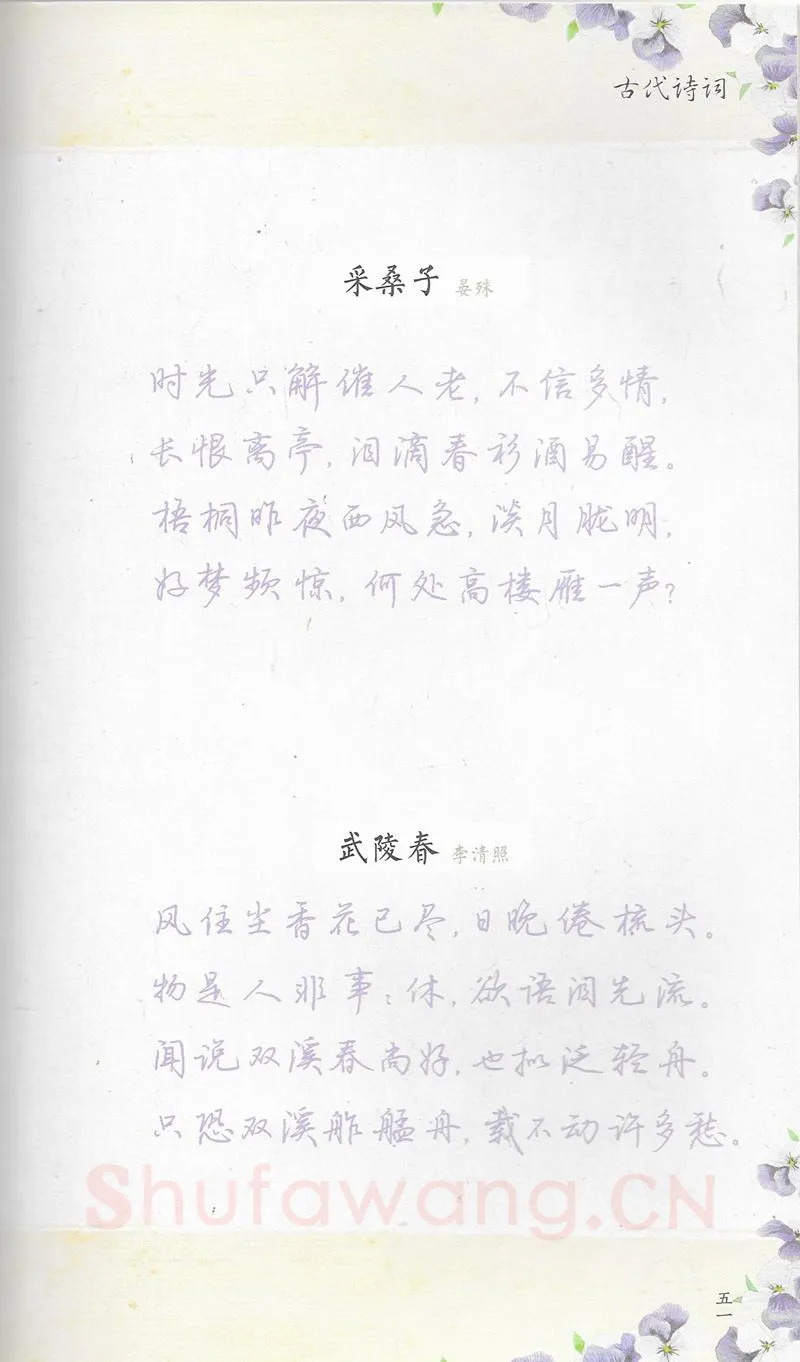 古代诗词
采桑子 晏殊
时光只解催人老,不信多情,
长恨离亭,泪滴春衫酒易醒。
梧桐昨夜西风急,淡月胧明,
好梦频惊,何处高楼雁一声?
武陵春 李清照
风住尘香花已尽,日晚倦梳头。
物是人非事:休,欲语泪先流。
闻说双溪春尚好,也拟泛轻舟。
只恐双溪舴艋舟,载不动许多愁。
Shufawang.CN
五一